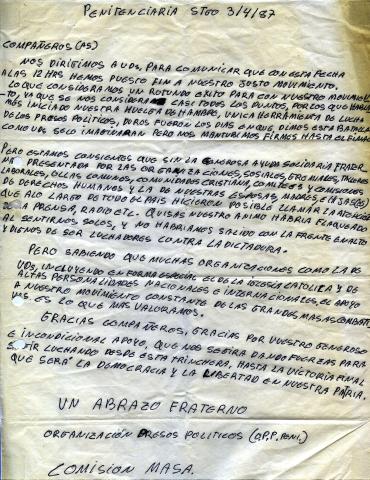 PENITENCIARIA STGO 3/4/87
COMPAÑEROS (AS)
NOS DIRIGIMOS A UDS, PARA COMUNICAR QUE CON ESTA FECHA
A LAS 12 HRS HEMOS PUESTO FIN A NUESTRO JUSTO MOVIMIENTO,
LO QUE CONSIDERAMOS UN ROTUNDO EXITO PARA CON NUESTRO MOVIMIEN-
TO, YA QUE SE NOS CONSIDERARON CASI TODOS LOS PUNTOS, POR LOS QUE HABIA-
MOS INICIADO NUESTRA HUELGA DE HAMBRE, UNICA HERRAMIENTA DE LUCHA
DE LOS PRESOS POLITICOS, DUROS FUERON LOS DIAS EN QUE, DIMOS ESTA BATALLA
COMO UDS SE LO IMAGINARAN PERO NOS MANTUVIMOS FIRMES HASTA EL FINAL
PERO ESTAMOS CONSIENTES QUE SIN LA GENEROSA AYUDA SOLIDARIA FRATER-
NA PRESENTADA POR LAS ORGANIZACIONES, SOSIALES, GREMIALES, TALLERES
LABORALES, OLLAS COMUNES, COMUNIDADES CRISTIANA, COMITEES Y COMISIONES
DE DERECHOS HUMANOS Y LA DE NUESTRAS ESPOSAS, MADRES, HIJAS(OS)
QUE A LO LARGO DE TODO EL PAIS HICIERON POSIBLE LLAMAR LA ATENCION
DE LA PRENSA, RADIO ETC. QUISAS NUESTRO ANIMO HABRIA FLAQUEADO
AL SENTIRNOS, SOLOS, Y NO HABRIAMOS SALIDO CON LA FRENTE EN ALTO
Y DIGNOS DE SER LUCHADORES CONTRA LA DICTADURA.
PERO SABIENDO QUE MUCHAS ORGANIZACIONES COMO LA DE
UDS, INCLUYENDO EN FORMA ESPECIAL EL DE LA IGLESIA CATOLICA Y DE
ALTAS PERSONALIDADES NACIONALES E INTERNACIONALES, EL APOYO
A NUESTRO MOVIMIENTO CONSTANTE DE LAS GRANDES MASAS COMBATI-
VAS. ES LO QUE MAS VALORAMOS.
GRACIAS COMPAÑEROS, GRACIAS POR VUESTRO GENEROSO
E INCONDICIONAL APOYO, QUE NOS SEGIRA DANDO FUERZAS PARA
SEGUIR LUCHANDO DESDE ESTA TRINCHERA, HASTA LA VICTORIA FINAL
QUE SERA LA DEMOCRACIA Y LA LIBERTAD EN NUESTRA PATRIA.
UN ABRAZO FRATERNO
ORGANIZACIÓN PRESOS POLITICOS (O.P.P. PENI.)
COMISION MASA.